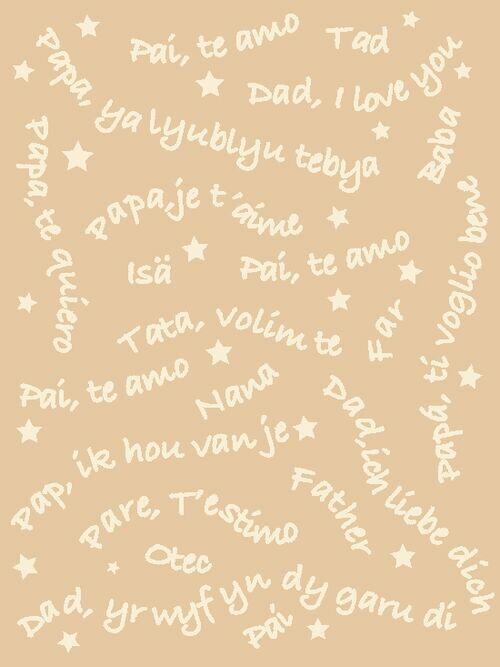 Pai, te amo
Tad
Papa, ya lyublyu tebya
Dad, I love you
Baba
Papa, te quiero
Papa,je t'aime
Isä
Pai, te amo
Papá, ti voglio bene
Tata, volim te
Far
Pai, te amo
Nana
Dad,ich liebe dich
Pap, ik hou van je
Father
Pare, T'estimo
Otec
Dad, yr wyf yn dy garu di
Pai